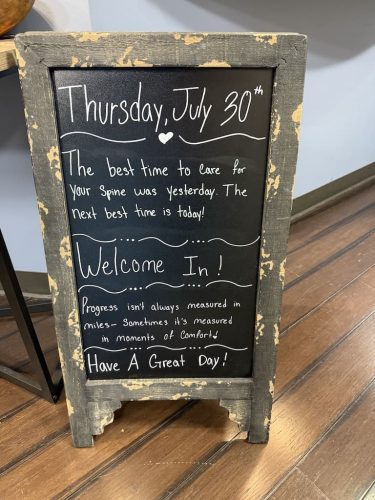 Thursday, July 30th
The best time to care for
your spine was yesterday. The
next best time is today!
Welcome In!
Progress isn't always measured in
miles- Sometimes it's measured
in moments of Comfort!
Have A Great Day!